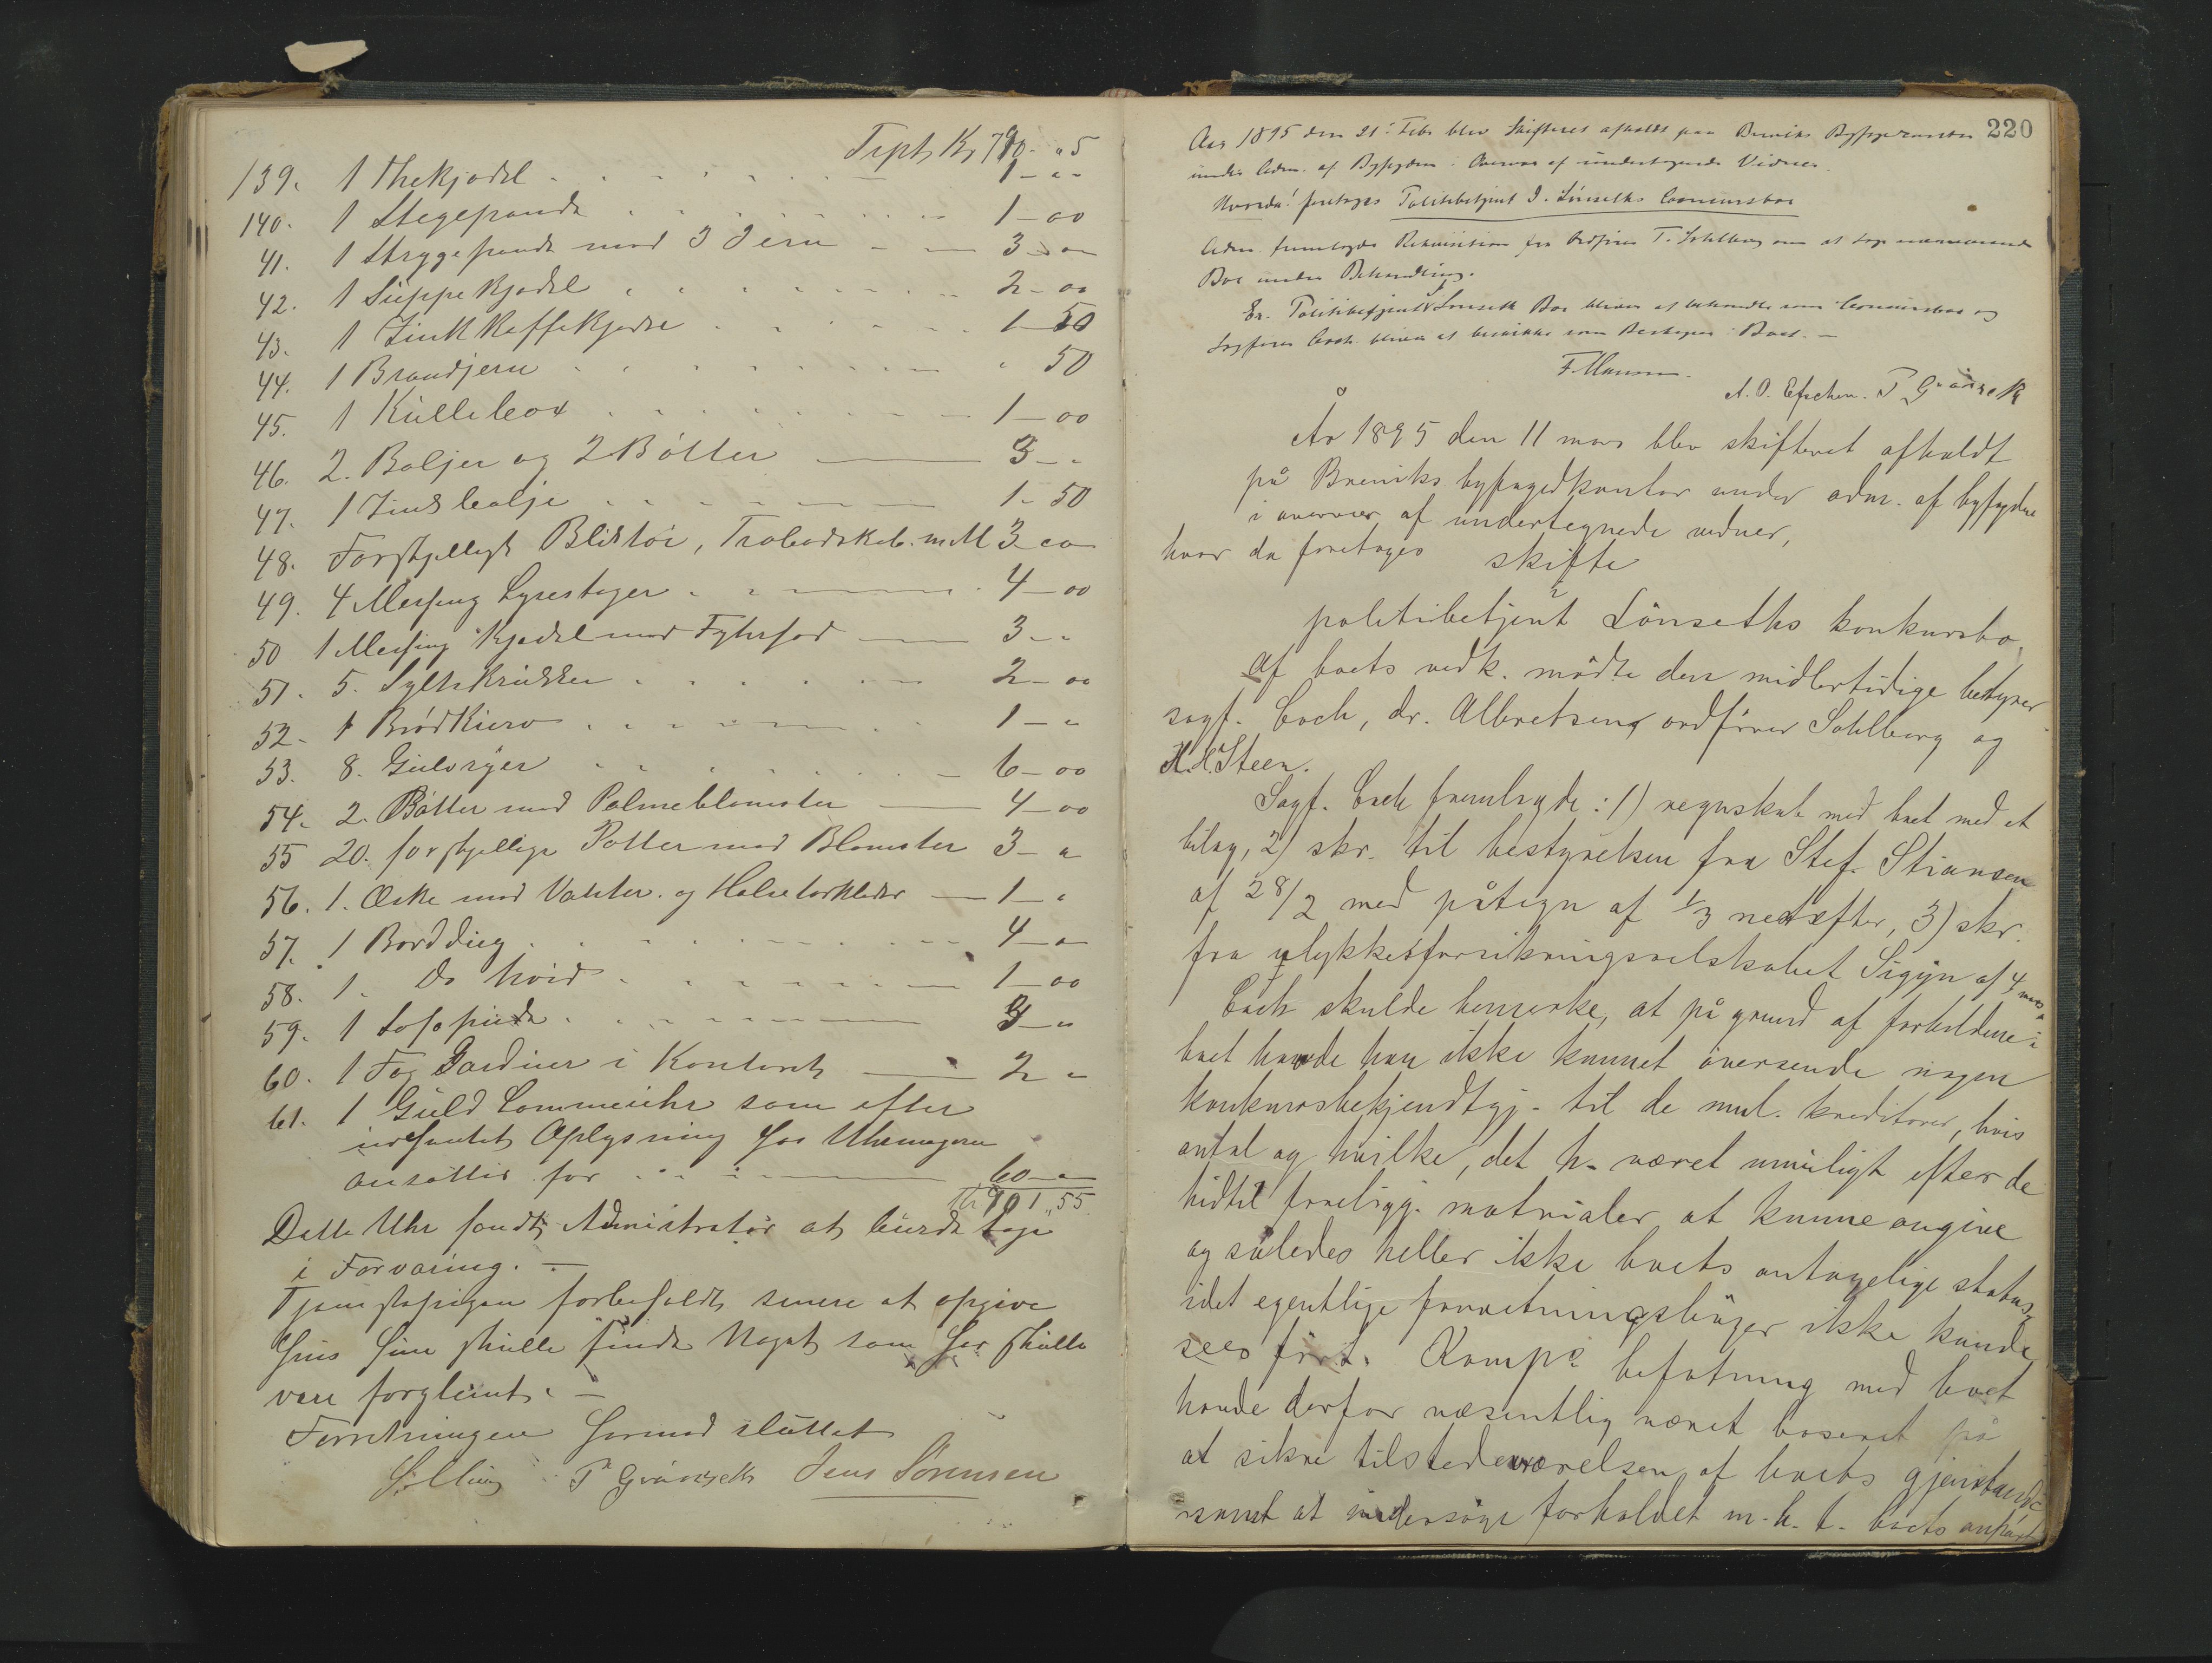 Trpt. Kr 790 - 05
139. 1 Thekjedel 1 - " -
140. 1 Stegepande 1 - 00
41. 1 Strygepande med 3 Jern 3 - 00
42. 1 Suppekjedel 2 - 00
43. 1 Zink Kaffekjedel 1 - 50
44. 1 Brandjern " 50
45. 1 Kullebox 1 - 00
46. 2. Baljer og 2 Bøtter 3 - "
47. 1 Zinkbalje 1 - 50
48. Forskjelligt Bliktøi, Træbadskab. m. M 3 - 00
49. 4 Messing Lysestager 4 - 00
50 1 Messing Kjedel med Fyhrfad 3 - "
51. 5. Sylte Krukker 2 - 00
52. 1 Brødkurv 1 - "
53. 8. Gulvryer 6 - 00
54. 2. Bøtter med Palmeblomster 4 - 00
55 20. forskjellige Potter med Blomster 3 - "
56. 1. Æske med Vanter og Halstørklæder 1 - "
57. 1 Borddug 4 - "
58. 1. Do hvid 1 - 00
59. 1 Sofapude 3 - "
60. 1 Fag Gardiner i Kontoret 2 "
61. 1 Guld Lommeuhr som efter
indhentet Oplysning hos Uhrmageren
ansættes for 60 - "
Kr 901,,55
Dette Uhr fandt Administrator at burde tage
i Forvaring. —
Tjenestepigen forbeholdt senere at opgive
hvis hun skulle finde Noget som her skulle
være forglemt. —
Forretningen hermed sluttet
P Grönseth Jens Sørensen
220
Aar 1895 den 21de Febr blev Skifteret afholdt paa Breviks Byfogedkontor
under Adm. af Byfogden i Overvær af undertegnede Vidner.
Hvorda! foretoges Politibetjent J. Lönseths Concursbo
Adm. fremlagde Rekvisition fra Ordfører T. Sohlberg om at tage nærværende
Bo under Behandling.
Er. Politibetjent Lönseth Bo bliver at behandle som Concursbo og
Sagfører Coch bliver at beskikke som Bestyrer i Boet. —
F. Hansen.
A. O. Efschen. P Grönseth
År 1895 den 11 mars blev skifteret afholdt
på Breviks byfogedkontor under adm. af byfogden
i overvær af undertegnede vidner,
hvor da foretoges skifte
i
politibetjent Lönseths konkursbo,
Af boets vedk. mödte den midlertidige bestyrer
sagf. Coch, dr. Albretsen, ordförer Sohlberg og
H. H. Steen.
Sagf. Coch fremlagde: 1) regnskab med boet med et
bilag, 2) skr. til bestyrelsen fra Stef. Stiansen
af 28/2 med påtegn af 1/3 næstefter, 3) skr.
fra ulykkesforsikringsselskabet Sigyn af 4 mars.
Coch skulde bemerke, at på grund af forholdene i
boet havde han ikke kunnet oversende nogen
konkursbekjendtgj. til de mul. kreditorer, hvis
antal og hvilke, det h. været umuligt efter de
hidtil foreligg. materialer at kunne angive
og således heller ikke boets antagelige status,
idet egentlige forretningsböger ikke kunde
sees fört. Komp. befatning med boet
havde derfor væsentlig været baseret på
at sikre tilstedeværelsen af boets gjenstande
samt at undersöge forholdet m. h. t. boets anförte